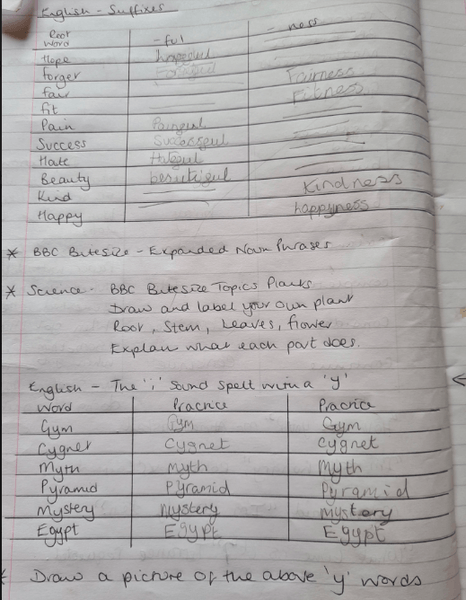 English - Suffixes
Root Word -ful -ness
Hope hopeful
Forget
fair Fairness
fit Fitness
Pain Painful
Success Successful
Hate Hateful
Beauty beautiful
Kind Kindness
Happy happyness
* BBC Bitesize - Expanded Noun Phrases
* Science - BBC Bitesize Topics Plants
Draw and label your own plant
Root, Stem, Leaves, flower
Explain what each part does.
English - The 'i' sound spelt with a 'y'
Word Practice Practice
Gym Gym Gym
Cygnet Cygnet Cygnet
Myth Myth Myth
Pyramid Pyramid Pyramid
Mystery Mystery Mystery
Egypt Egypt Egypt
* Draw a picture of the above 'y' words